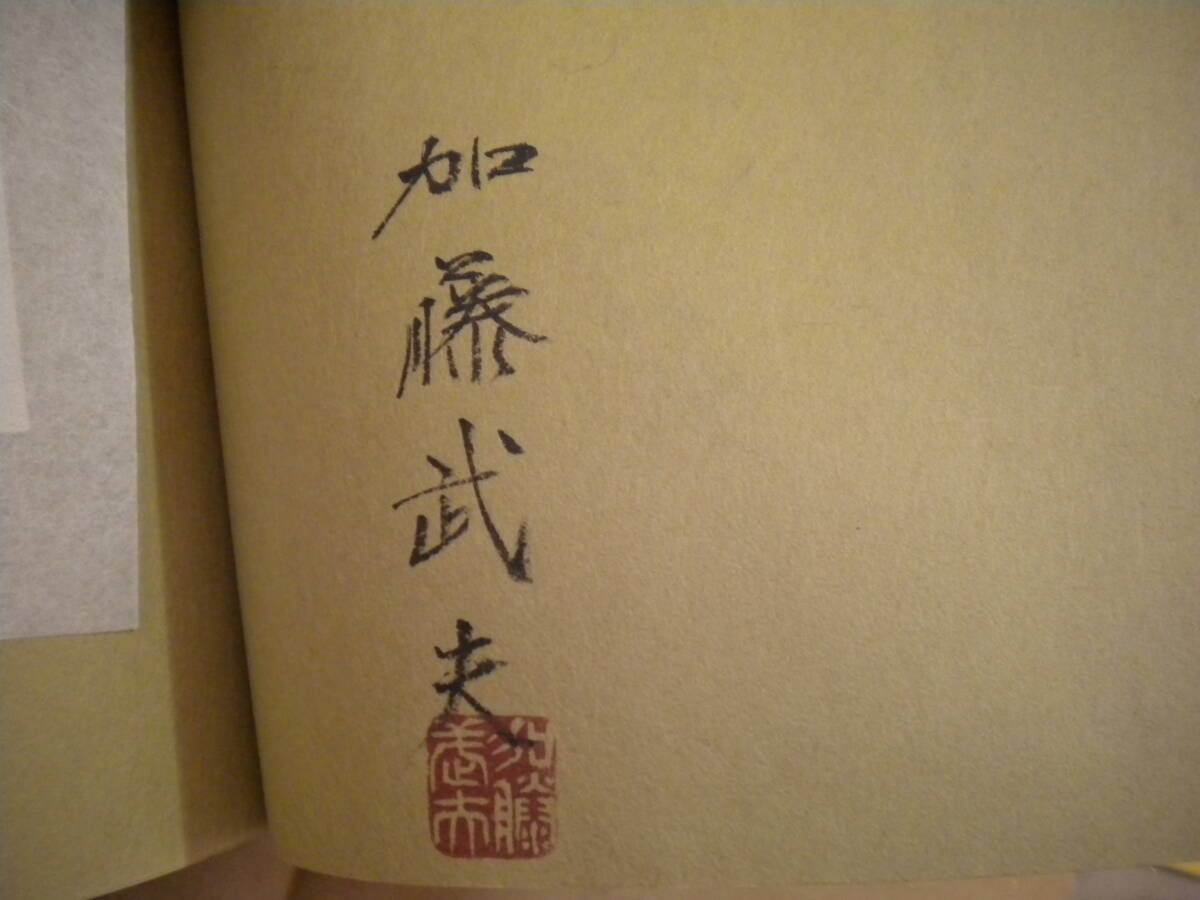 加藤武夫
加藤武夫